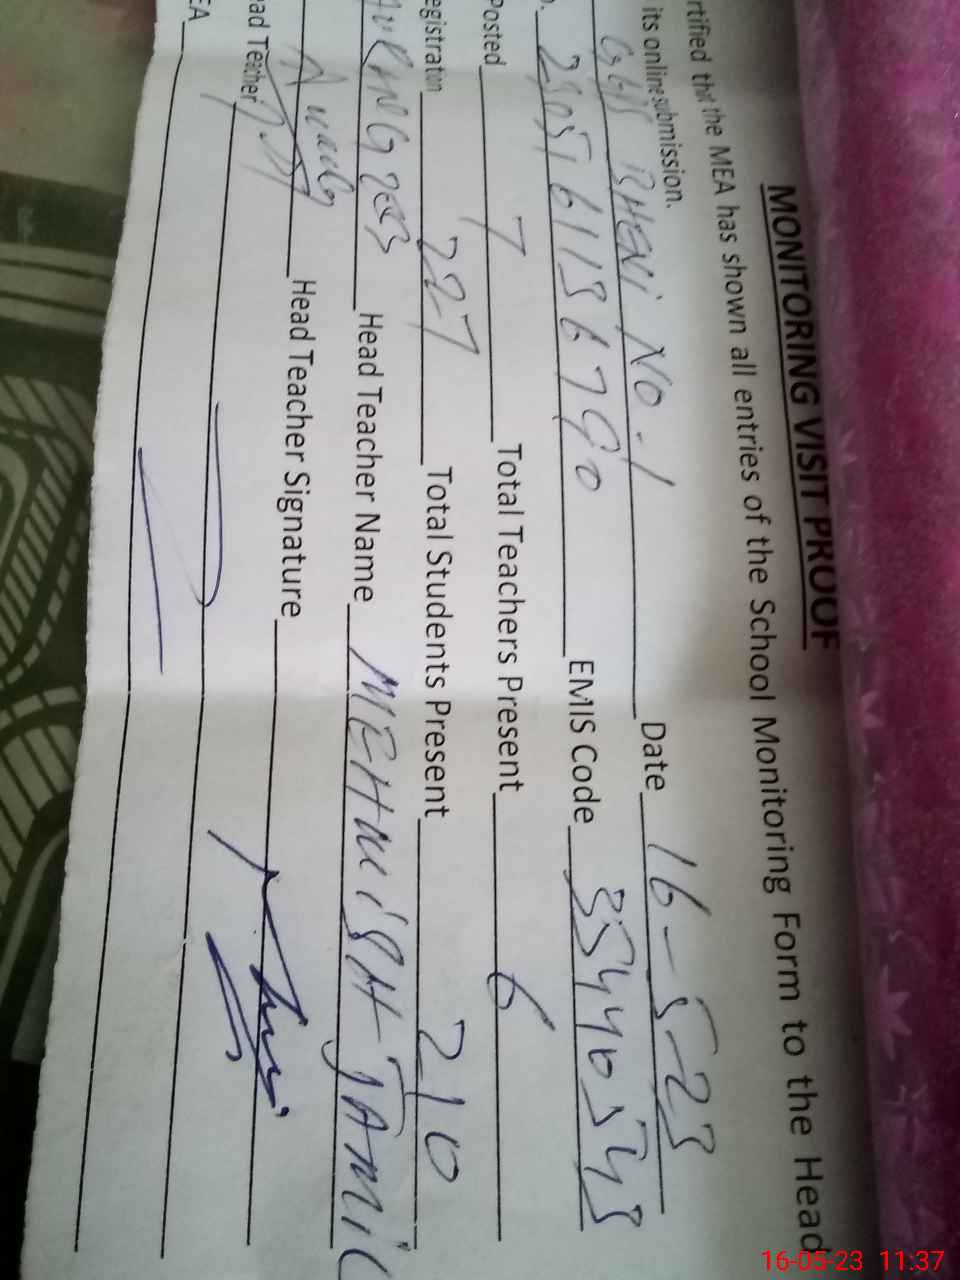 MONITORING VISIT PROOF
rtified that the MEA has shown all entries of the School Monitoring Form to the Head
its online submission.
GGPS BHENI NO-1 Date 16-5-23
EMIS Code 35440543
Posted 7 Total Teachers Present 6
egistration 227 Total Students Present 210
Head Teacher Name MEHWISH JAMIL
Head Teacher Signature
ad Teacher
EA
16-05-23 11:37